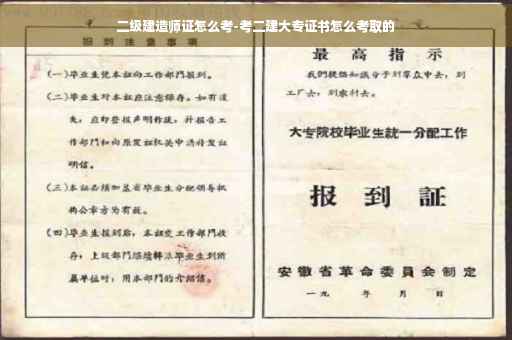 二级建造师证怎么考-考二建大专证书怎么考取的
报到注意事项
(一)毕业生凭本证向工作部门报到。
(二)毕业生对本证应注意保存。如有遗
失，应即登报声明作废，并报告工
作部门和向原发证机关申请补发证
明信。
(三)本证必须加盖省毕业生分配领导机
构公章方为有效。
(四)毕业生报到后，本证交工作部门收
存，上级部门
毕业生到所
属单位时，用本部门的介绍信。
最高指示
我们提倡知识分子到群众中去，到
工厂去，到农村去。
大专院校毕业生统一分配工作
报到证
安徽省革命委员会制定
一九 年 月 日